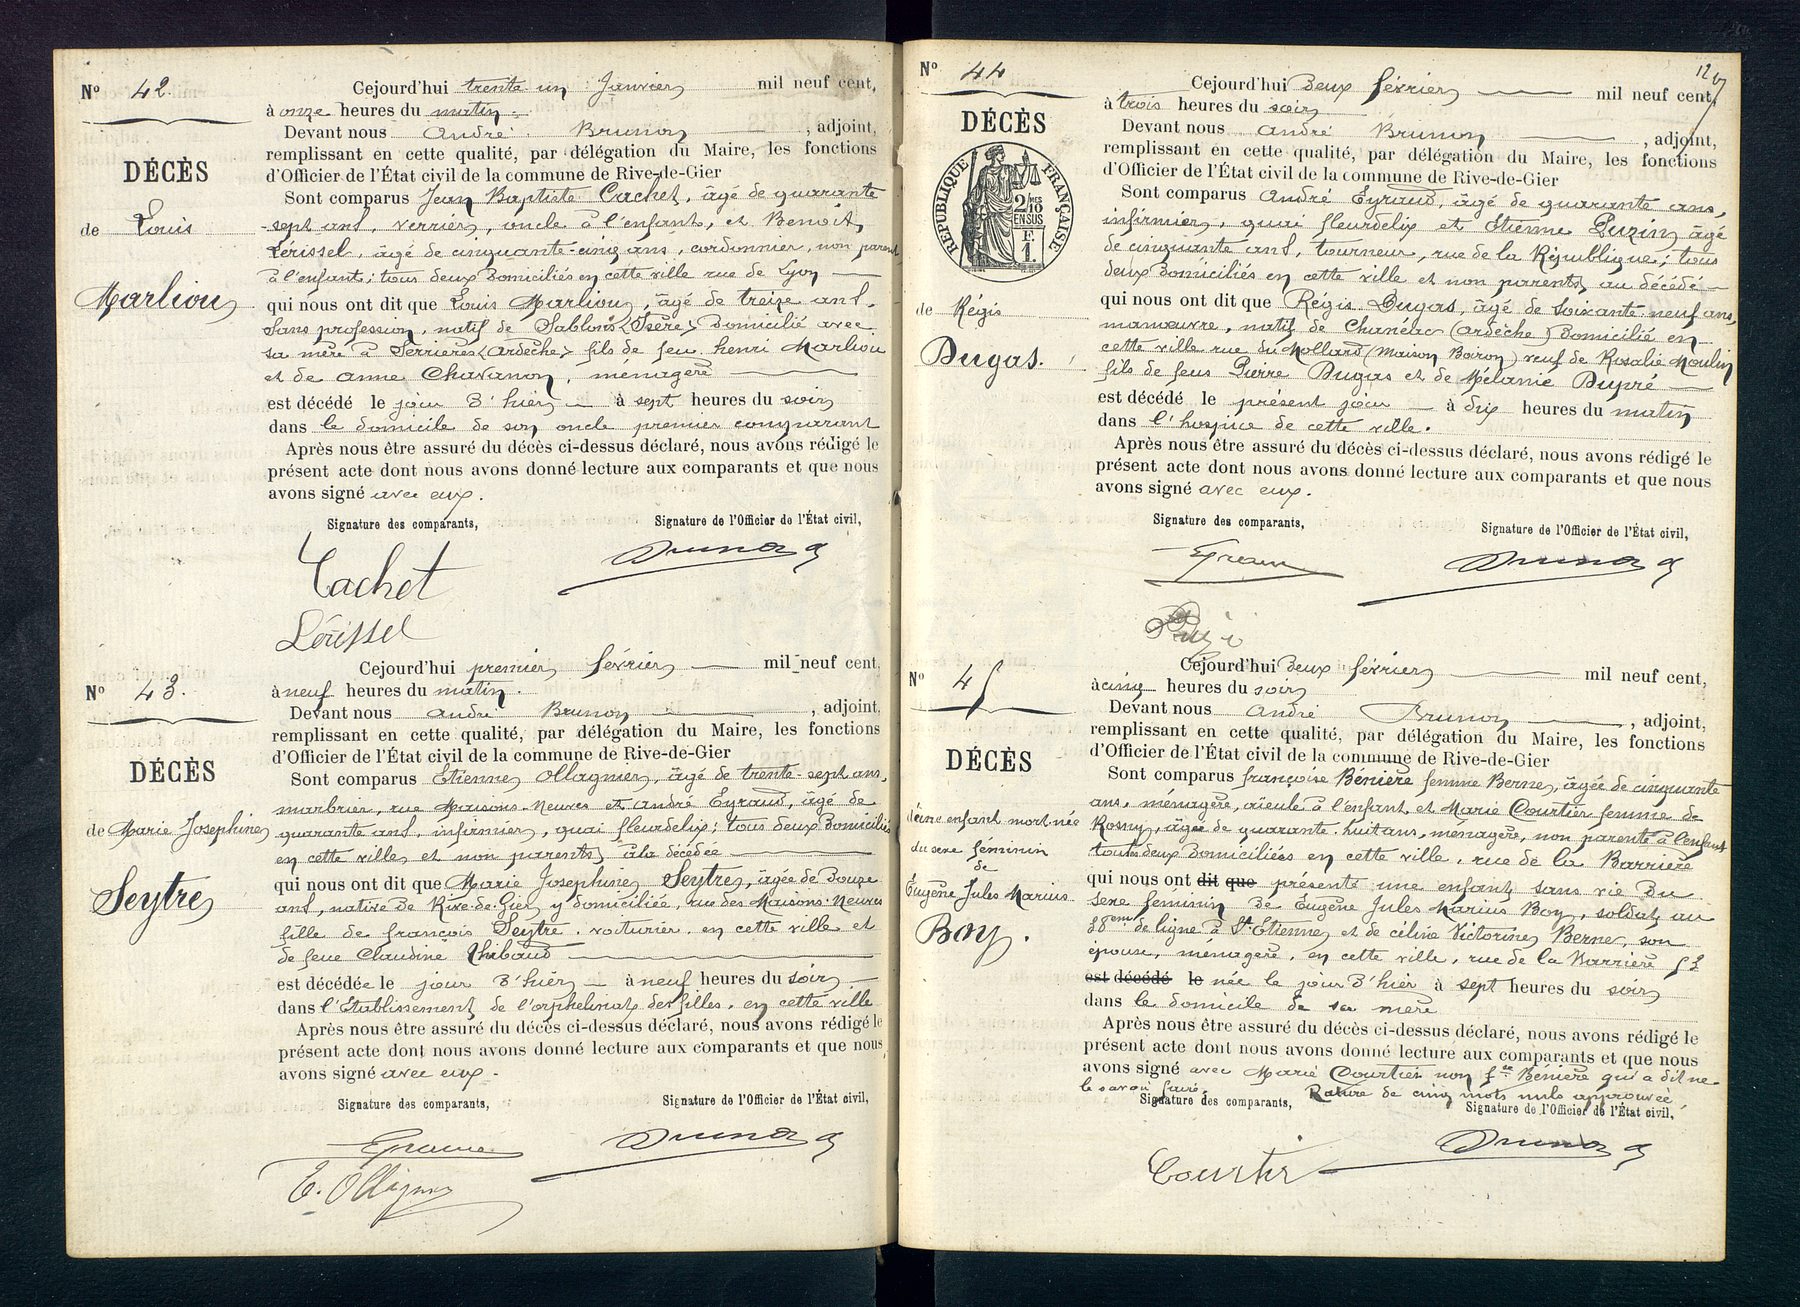 N° 42.
DÉCÈS
de Louis
Marliou
Cejourd'hui trente un Janvier mil neuf cent,
à onze heures du matin.
Devant nous André Brunon, adjoint,
remplissant en cette qualité, par délégation du Maire, les fonctions
d'Officier de l'État civil de la commune de Rive-de-Gier
Sont comparus Jean Baptiste Cachet, âgé de quarante
sept ans, verrier, oncle à l'enfant, et Benoît
Lérissel, âgé de cinquante-cinq ans, cordonnier, non parent
à l'enfant; tous deux domiciliés en cette ville rue de Lyon
qui nous ont dit que Louis Marliou, âgé de treize ans,
sans profession, natif de Sablons (Isère) domicilié avec
sa mère à Serrières (Ardèche) fils de feu henri Marliou
et de anne Chavanon, ménagère
est décédé le jour d'hier à sept heures du soir
dans le domicile de son oncle premier comparant
Après nous être assuré du décès ci-dessus déclaré, nous avons rédigé le
présent acte dont nous avons donné lecture aux comparants et que nous
avons signé avec eux.
Signature des comparants,
Signature de l'Officier de l'État civil,
Cachet
Brunon
Lérissel
N° 43.
DÉCÈS
de Marie Josephine
Seytre
Cejourd'hui premier février mil neuf cent,
à neuf heures du matin.
Devant nous andré Brunon, adjoint,
remplissant en cette qualité, par délégation du Maire, les fonctions
d'Officier de l'État civil de la commune de Rive-de-Gier
Sont comparus Etienne Ollagnier, âgé de trente-sept ans,
marbrier, rue Maisons-Neuves et André Eyraud, âgé de
quarante ans, infirmier, quai fleurdelix; tous deux domiciliés
en cette ville et non parents à la décédée
qui nous ont dit que Marie Josephine Seytre, âgée de douze
ans, native de Rive-de-Gier y domiciliée, rue des Maisons-Neuves
fille de françois Seytre, voiturier, en cette ville et
de feue Claudine Thibaud
est décédée le jour d'hier à neuf heures du soir
dans l'Etablissement de l'orphelinat des filles, en cette ville
Après nous être assuré du décès ci-dessus déclaré, nous avons rédigé le
présent acte dont nous avons donné lecture aux comparants et que nous
avons signé avec eux.
Signature des comparants,
Signature de l'Officier de l'État civil,
Eyraud
Brunon
E. Ollagnier
12
N° 44
DÉCÈS
RÉPUBLIQUE FRANÇAISE
2/10 MES
EN SUS
F
1.
de Régis
Dugas.
Cejourd'hui deux février mil neuf cent,
à trois heures du soir
Devant nous andré Brunon, adjoint,
remplissant en cette qualité, par délégation du Maire, les fonctions
d'Officier de l'État civil de la commune de Rive-de-Gier
Sont comparus André Eyraud, âgé de quarante ans,
infirmier, quai fleurdelix et Etienne Puzin, âgé
de cinquante ans, tourneur, rue de la République; tous
deux domiciliés en cette ville et non parents au décédé
qui nous ont dit que Régis Dugas, âgé de soixante-neuf ans,
manœuvre, natif de Chanéac (ardèche) domicilié en
cette ville rue du Mollard (maison Boiron) veuf de Rosalie Moulin
fils de feus Pierre Dugas et de Mélanie Dupré
est décédé le présent jour à dix heures du matin
dans l'hospice de cette ville.
Après nous être assuré du décès ci-dessus déclaré, nous avons rédigé le
présent acte dont nous avons donné lecture aux comparants et que nous
avons signé avec eux.
Signature des comparants,
Signature de l'Officier de l'État civil,
Eyraud
Brunon
N° 45
DÉCÈS
d'une enfant mort-née
du sexe féminin
de
Eugène Jules Marius
Boy.
Cejourd'hui deux février mil neuf cent,
à cinq heures du soir
Devant nous André Brunon, adjoint,
remplissant en cette qualité, par délégation du Maire, les fonctions
d'Officier de l'État civil de la commune de Rive-de-Gier
Sont comparus françoise Bénière femme Berne, âgée de cinquante
ans, ménagère, aïeule à l'enfant et Marie Courtier femme de
Rosny, âgée de quarante-huit ans, ménagère, non parente à l'enfant
toutes deux domiciliées en cette ville, rue de la Barrière
qui nous ont dit que présenté une enfant sans vie du
sexe féminin de Eugène Jules Marius Boy, soldat au
38eme de ligne à St Etienne et de céline Victorine Berne, son
épouse, ménagère, en cette ville, rue de la Barrière 52
est décédé le née le jour d'hier à sept heures du soir
dans le domicile de sa mère
Après nous être assuré du décès ci-dessus déclaré, nous avons rédigé le
présent acte dont nous avons donné lecture aux comparants et que nous
avons signé avec Marie Courtier non fse Bénière qui a dit ne
le savoir faire. Rature de cinq mots nuls approuvée,
Signature des comparants,
Signature de l'Officier de l'État civil,
Courtier
Brunon